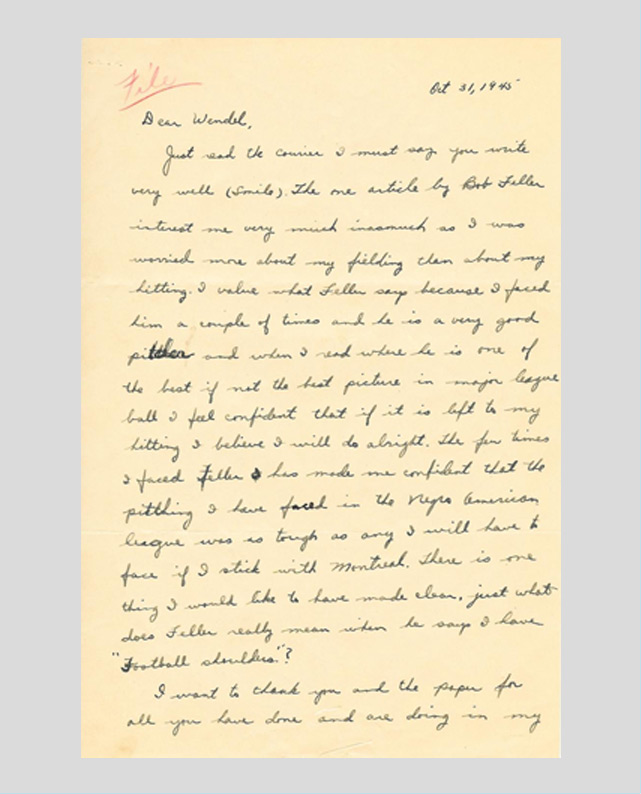 File
Oct 31, 1945
Dear Wendel,
Just read the courier I must say you write
very well (Smile). The one article by Bob Feller
interest me very much inasmuch as I was
worried more about my fielding than about my
hitting. I value what Feller says because I faced
him a couple of times and he is a very good
and when I read where he is one of
the best if not the best picture in major league
ball I feel confident that if it is left to my
hitting I believe I will do alright. The few times
I faced Feller has made me confident that the
pitthing I have faced in the Negro American
league was as tough as any I will have to
face if I stick with Montreal. There is one
thing I would like to have made clear, just what
does Feller really mean when he says I have
"Football shoulders."?
I want to thank you and the paper for
all you have done and are doing in my